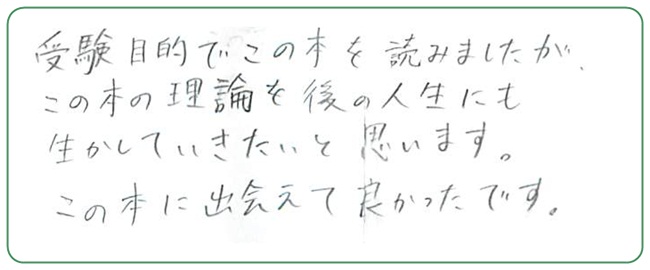 受験目的でこの本を読みましたが、
この本の理論を後の人生にも
生かしていきたいと思います。
この本に出会えて良かったです。